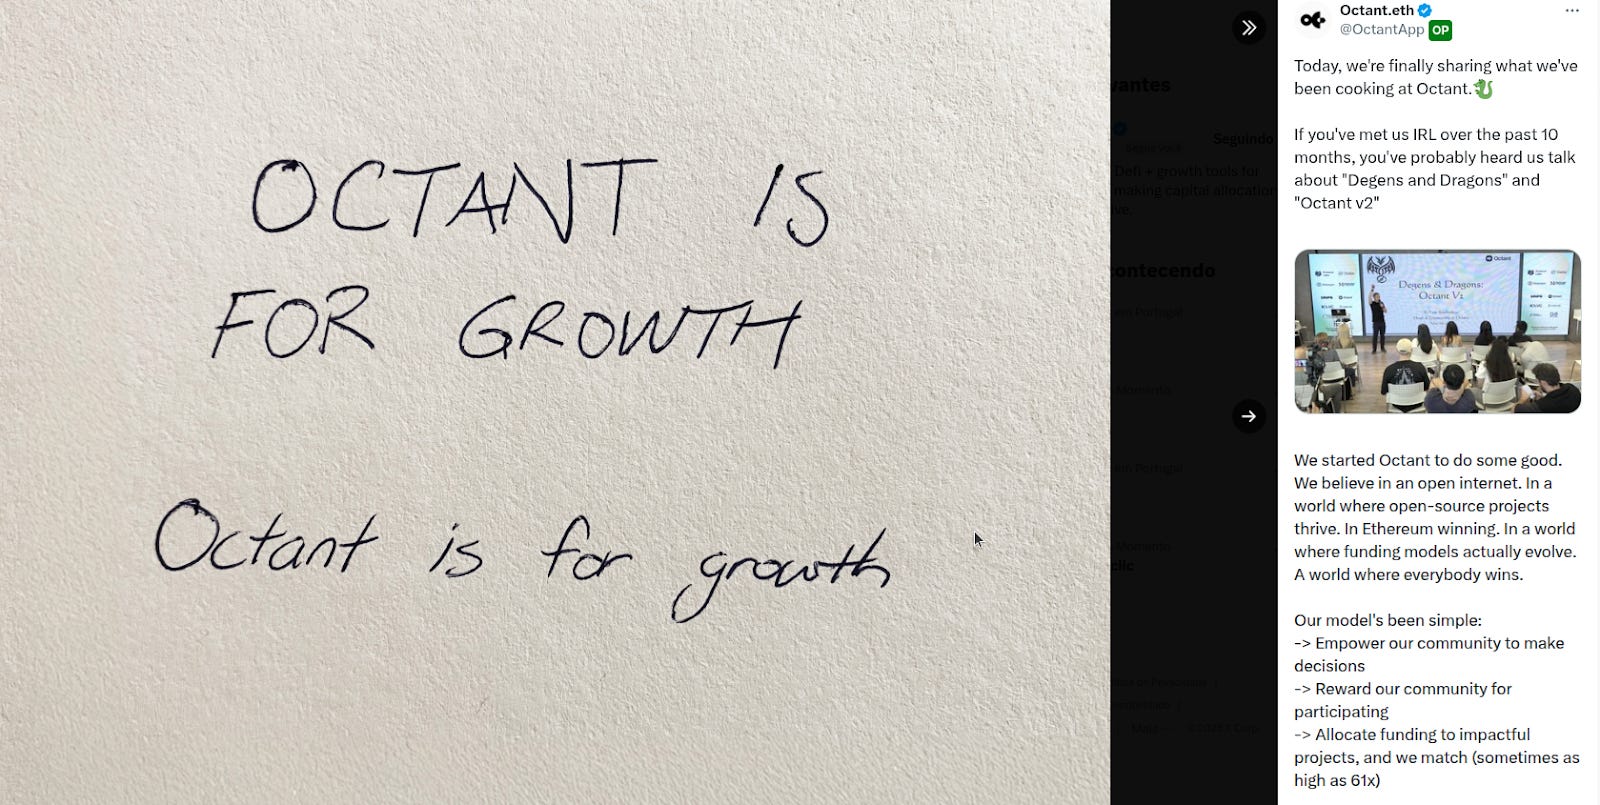 OCTANT IS
FOR GROWTH
Octant is for growth
vantes
Seguindo
Defi + growth tools for
making capital allocation
ive.
contecendo
em Portugal
Momento
em Portugal
Momento
clic
Octant.eth
@OctantApp OP
Today, we're finally sharing what we've
been cooking at Octant.🐉
If you've met us IRL over the past 10
months, you've probably heard us talk
about "Degens and Dragons" and
"Octant v2"
Octant
Degens & Dragons:
We started Octant to do some good.
We believe in an open internet. In a
world where open-source projects
thrive. In Ethereum winning. In a world
where funding models actually evolve.
A world where everybody wins.
Our model's been simple:
-> Empower our community to make
decisions
-> Reward our community for
participating
-> Allocate funding to impactful
projects, and we match (sometimes as
high as 61x)